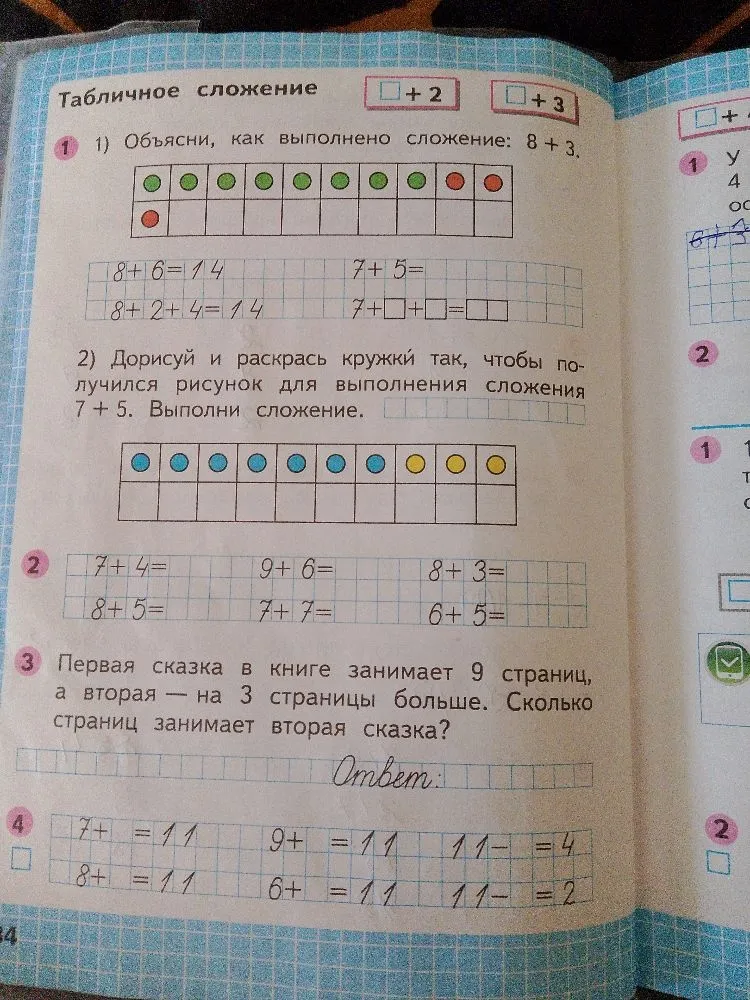 Табличное сложение □ + 2 □ + 3
1 1) Объясни, как выполнено сложение: 8 + 3.
8+6=14 7+5=
8+2+4=14 7+□+□=□□
2) Дорисуй и раскрась кружки так, чтобы по-
лучился рисунок для выполнения сложения
7 + 5. Выполни сложение.
2 7+4= 9+6= 8+3=
8+5= 7+7= 6+5=
3 Первая сказка в книге занимает 9 страниц,
а вторая — на 3 страницы больше. Сколько
страниц занимает вторая сказка?
Ответ:
4 7+ =11 9+ =11 11- =4
8+ =11 6+ =11 11- =2
□ +
1 У
4
ос
2
1 1
т
2